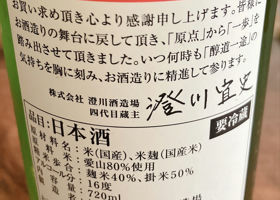 お買い求め頂き心より感謝申し上げます。皆様に
お酒造りの舞台に戻して頂き、「原点」から「一歩」を
踏み出させて頂きました。いつ何時も「醇道一途」の
気持ちを胸に刻み、お酒造りに精進して参ります。
株式会社 澄川酒造場
四代目蔵主
澄川宜史
要冷蔵
品目:日本酒
原材料:米(国産)、米麹(国産米)
原料米:愛山80%使用
精米歩合:麹米40%、掛米50%
アルコール分:16度
720ml